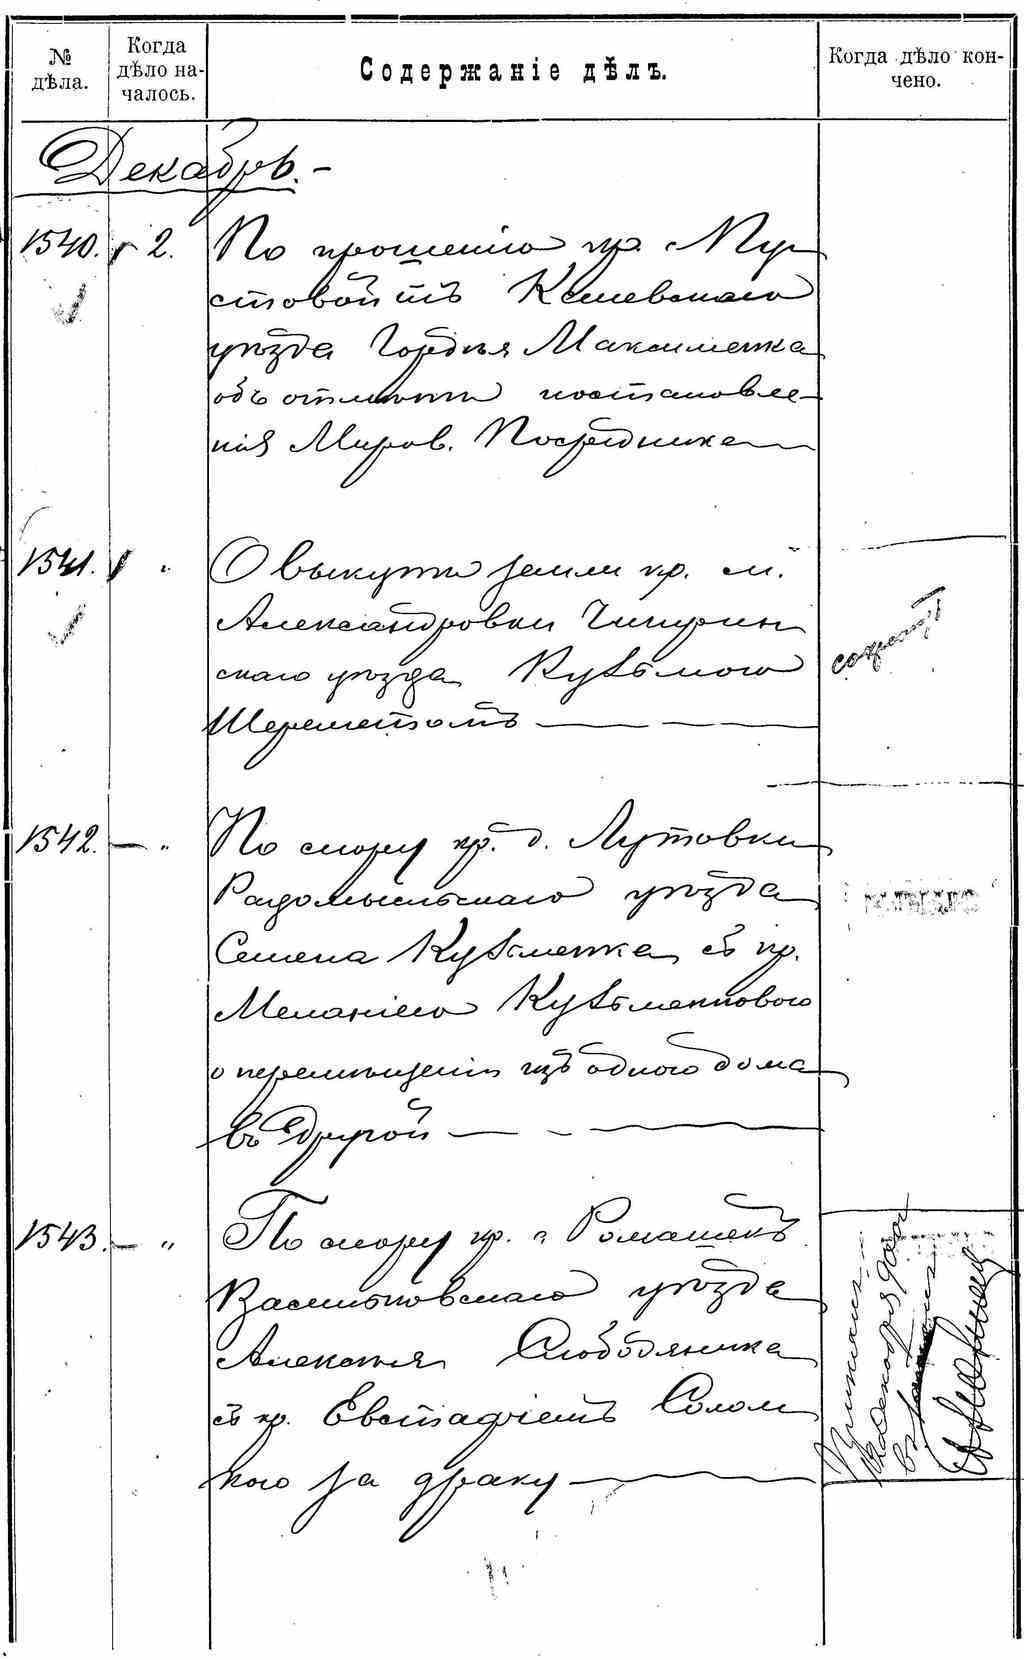 № дѣла.
Когда дѣло началось.
Содержаніе дѣлъ.
Когда дѣло кончено.
Декабрь.-
1540. 2. По прошенію кр. Мустовой
Кіевскаго
уѣзда Гордѣя Максименка
объ отмѣнѣ постановле-
нія Миров. Посредника
1541. " О выкупѣ земли кр. м.
Александровки Чигирин
скаго уѣзда Кузьмою
Шереметомъ
1542. — " По спору кр. д. Лутовки
Радомысльскаго уѣзда
Семена Кузьменка съ кр.
Меланіею Кузьменковою
о перемѣщеніи изъ одного дома
въ другой
1543. — " По спору кр. с Ромашекъ
Васильковскаго уѣзда
Алексѣя Слободяника
съ кр. Евстафіемъ Солом
кою за драку